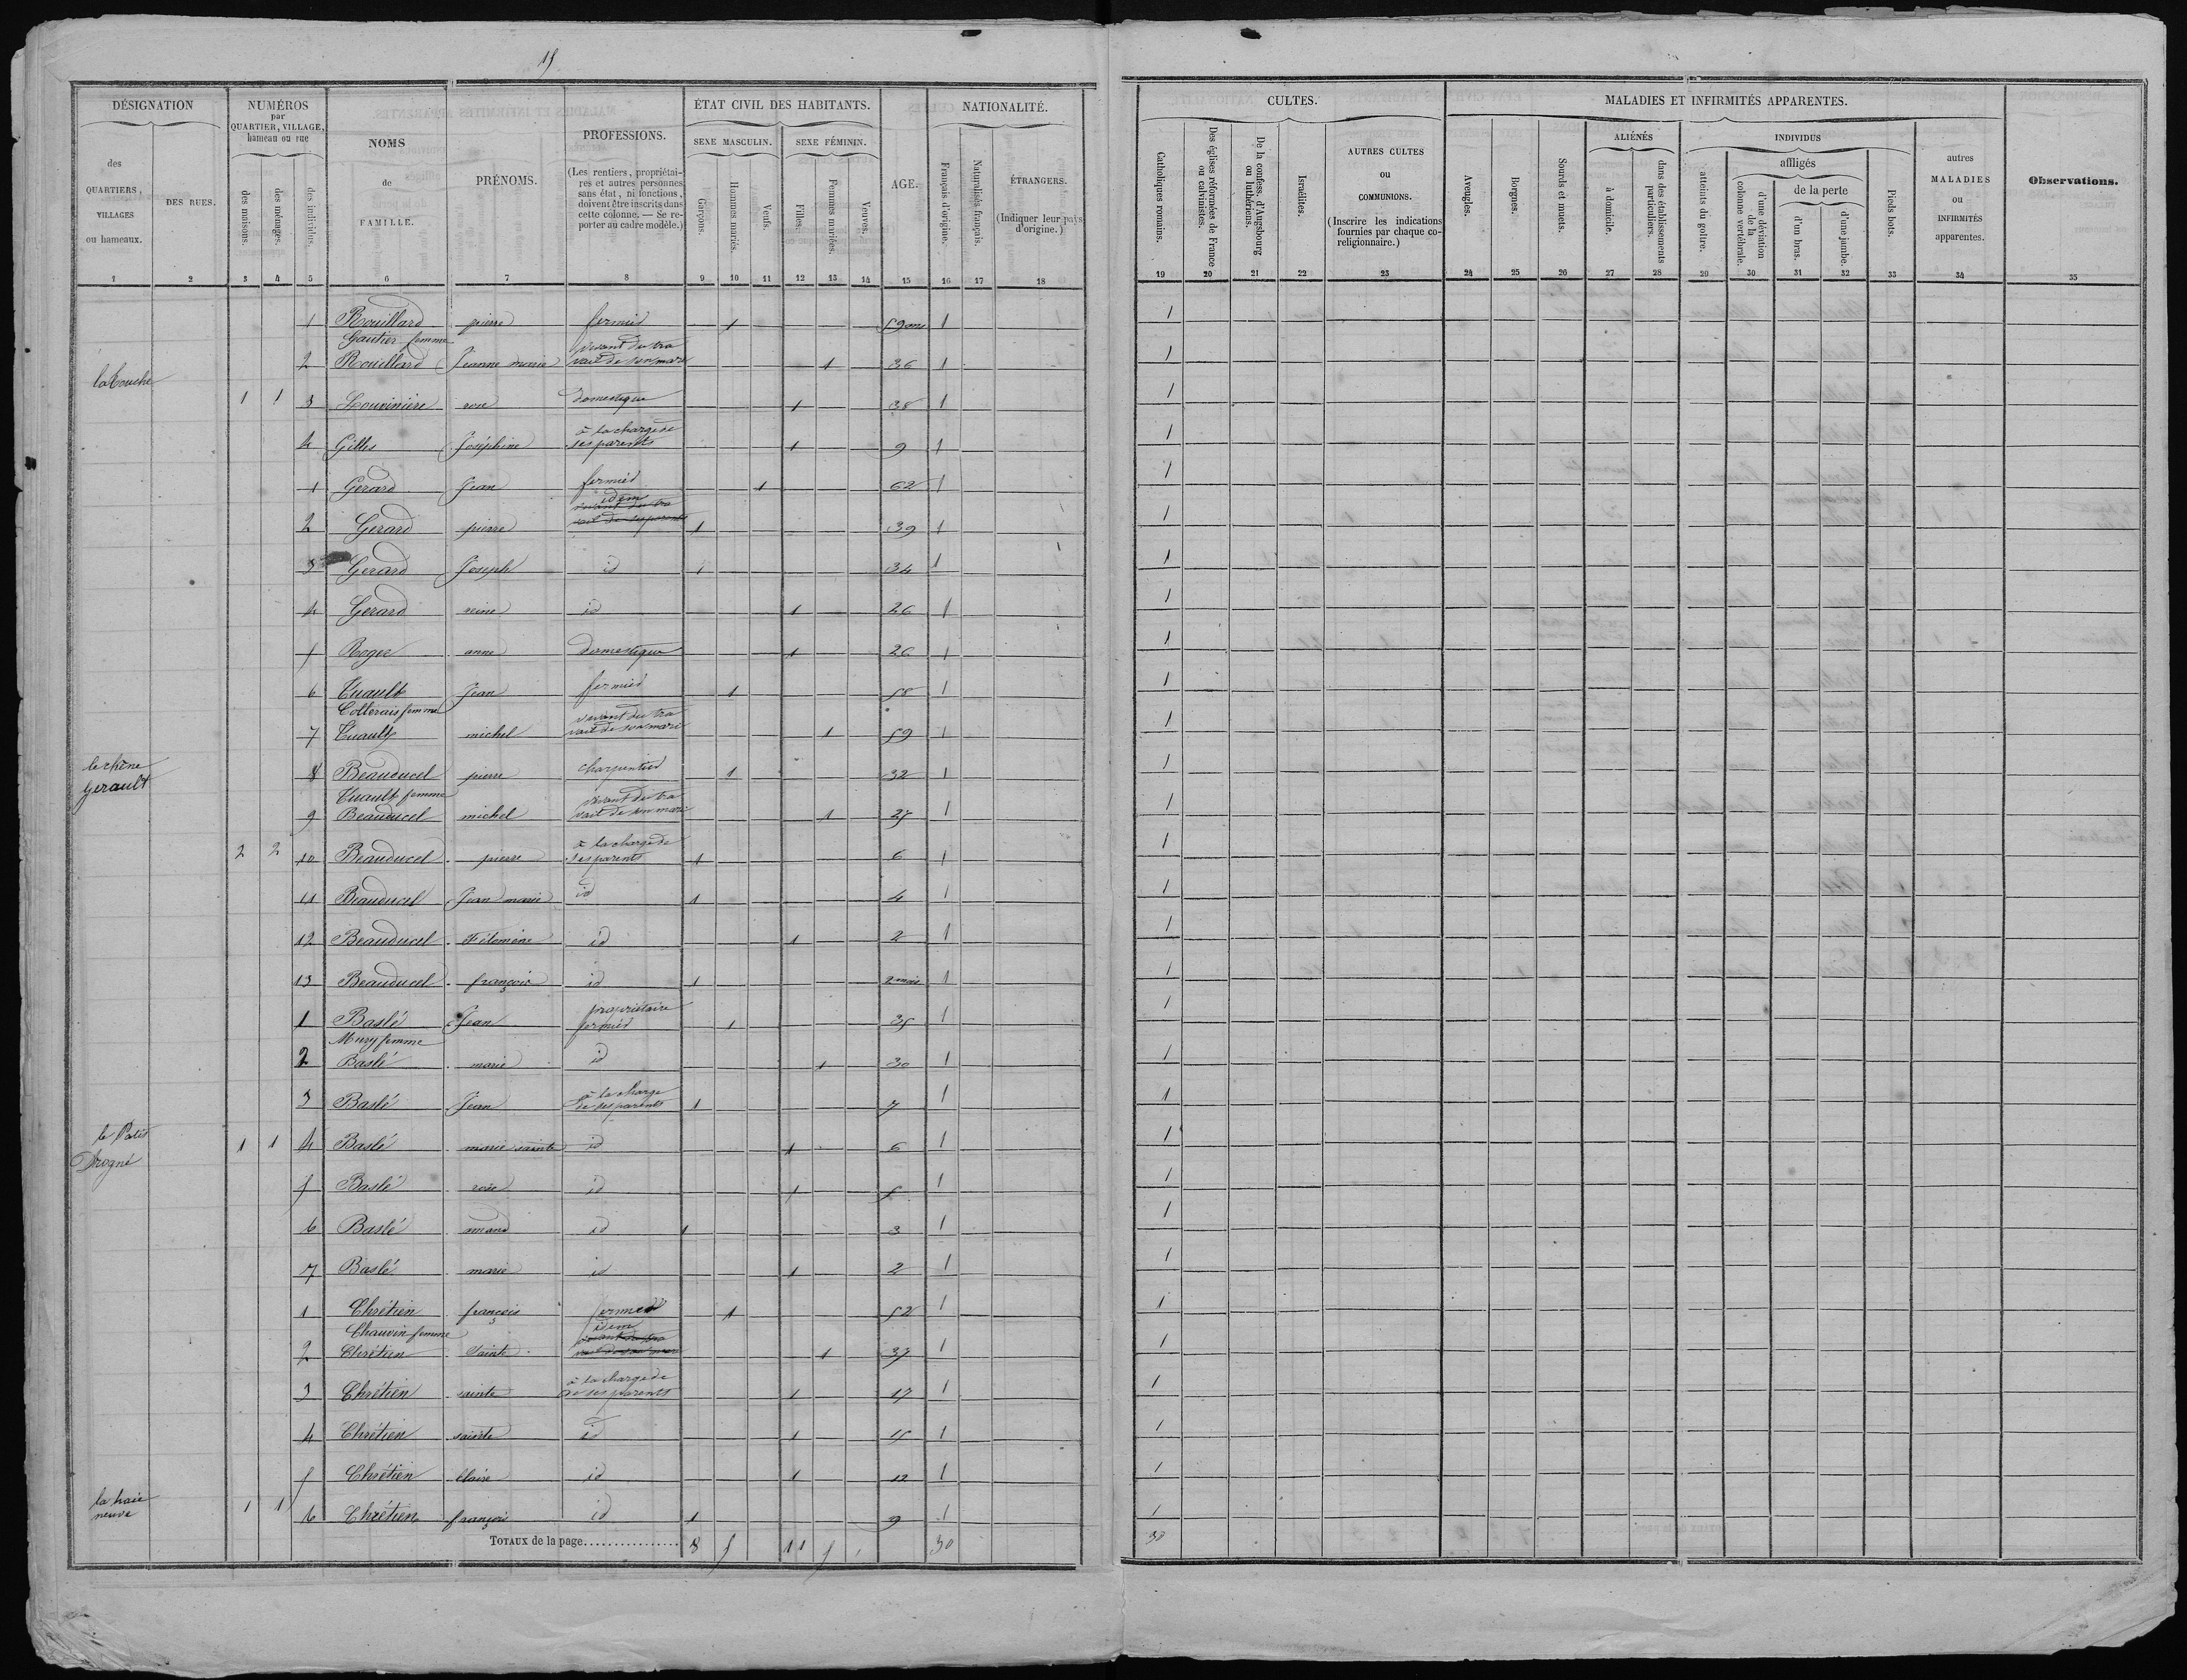 15
DÉSIGNATION | NUMÉROS par QUARTIER, VILLAGE, hameau ou rue | NOMS de FAMILLE. | PRÉNOMS. | PROFESSIONS. (Les rentiers, propriétaires et autres personnes sans état, ni fonctions, doivent être inscrits dans cette colonne. — Se reporter au cadre modèle.) | ÉTAT CIVIL DES HABITANTS. | AGE. | NATIONALITÉ.
des QUARTIERS, VILLAGES ou hameaux. | DES RUES. | des maisons. | des ménages. | des individus. | SEXE MASCULIN. | SEXE FÉMININ.
Garçons. | Hommes mariés. | Veufs. | Filles. | Femmes mariées. | Veuves. | Français d'origine. | Naturalisés français. | ÉTRANGERS. (Indiquer leur pays d'origine.)
1 2 3 4 5 6 7 8 9 10 11 12 13 14 15 16 17 18
1 Rouillard pierre fermier 1 59 ans 1
2 Gautier femme Rouillard Jeanne marie vivant du travail de son mari 1 36 1
la touche 1 1 3 Louvinière rose domestique 1 38 1
4 Gilles Joséphine à la charge de ses parents 1 9 1
1 Gerard Jean fermier 1 62 1
2 Gerard pierre idem 1 39 1
3 Gerard Joseph id 1 34 1
4 Gerard reine id 1 26 1
5 Roger anne domestique 1 26 1
6 Tuault Jean fermier 1 58 1
7 Collerais femme Tuault michel vivant du travail de son mari 1 59 1
le chêne Gerault 8 Beauducel pierre charpentier 1 32 1
9 Tuault femme Beauducel michel vivant du travail de son mari 1 27 1
2 2 10 Beauducel pierre à la charge de ses parents 1 6 1
11 Beauducel Jean marie id 1 4 1
12 Beauducel Filomène id 1 2 1
13 Beauducel françois id 1 2 mois 1
1 Baslé Jean propriétaire fermier 1 35 1
2 Mury femme Baslé marie id 1 30 1
3 Baslé Jean à la charge de ses parents 1 7 1
le Patis Drogné 1 1 4 Baslé marie sainte id 1 6 1
5 Baslé rose id 1 5 1
6 Baslé amand id 1 3 1
7 Baslé marie id 1 2 1
1 Chrétien françois fermier 1 52 1
2 Chauvin femme Chrétien Sainte idem 1 37 1
3 Chrétien sainte à la charge de de ses parents 1 17 1
4 Chrétien sainte id 1 15 1
5 Chrétien Claire id 1 12 1
la haie neuve 1 1 6 Chrétien françois id 1 9 1
TOTAUX de la page 8 5 1 11 5 30
CULTES. | MALADIES ET INFIRMITÉS APPARENTES. | Observations.
Catholiques romains. | Des églises réformées de France ou calvinistes. | De la confess. d'Augsbourg ou luthériens. | Israélites. | AUTRES CULTES ou COMMUNIONS. (Inscrire les indications fournies par chaque co-religionnaire.)
Aveugles. | Borgnes. | Sourds et muets. | ALIÉNÉS à domicile. | dans des établissements particuliers. | INDIVIDUS atteints du goître. | affligés d'une déviation de la colonne vertébrale. | de la perte d'un bras. | d'une jambe. | Pieds bots. | autres MALADIES ou INFIRMITÉS apparentes.
19 20 21 22 23 24 25 26 27 28 29 30 31 32 33 34 35
1
1
1
1
1
1
1
1
1
1
1
1
1
1
1
1
1
1
1
1
1
1
1
1
1
1
1
1
1
1
30